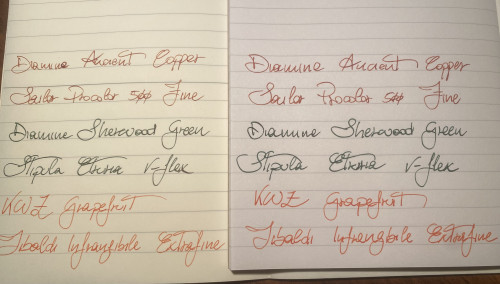 Diamine Ancient Copper
Sailor Procolor 500 Fine
Diamine Sherwood Green
Stipula Etruria V-flex
KWZ Grapefruit
Tibaldi Infrangibile Extrafine
Diamine Ancient Copper
Sailor Procolor 500 Fine
Diamine Sherwood Green
Stipula Etruria V-flex
KWZ Grapefruit
Tibaldi Infrangibile Extrafine